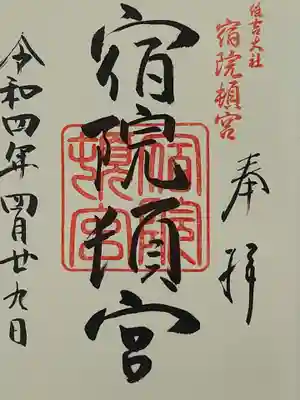 住吉大社
宿院頓宮
奉拝
宿院頓宮
宿院頓宮
令和四年四月廿九日